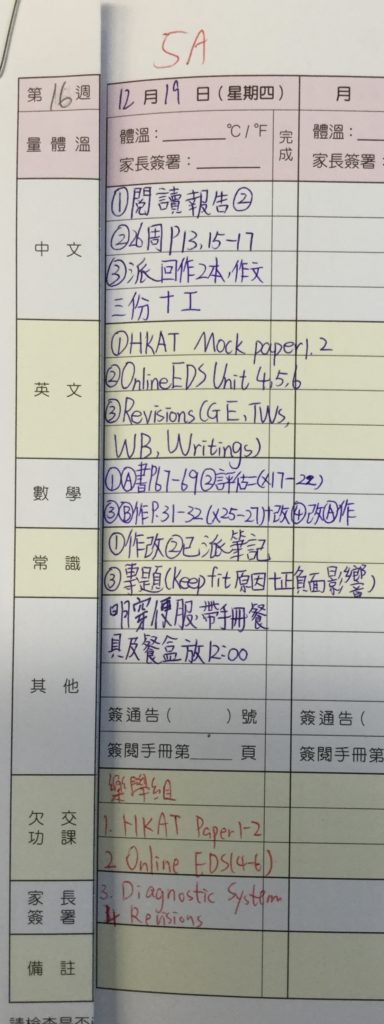 5A
第16週
12月19日(星期四)
月
量體溫
體溫:______°C/°F
家長簽署:______
完成
體溫:
家長簽
中文
①閱讀報告②
②26周P13,15-17
③派回作2本,作文
三份+工
英文
①HKAT Mock paper1.2
②Online EDS Unit 4,5,6
③Revisions(GE,TWs,
WB,Writings)
數學
①Ⓐ書P67-69②評估二(X17-22)
③Ⓑ作P.31-32(X25-27)+改④改Ⓐ作
常識
①作改②已派筆記
③專題(Keep fit原因+正負面影響)
其他
明穿便服,帶手冊餐
具及餐盒放12:00
簽通告( )號
簽通告(
簽閱手冊第____頁
簽閱手冊第
欠交功課
樂學組
1. HKAT Paper1-2
2. Online EDS(4-6)
家長簽署
3. Diagnostic System
4 Revisions
備註